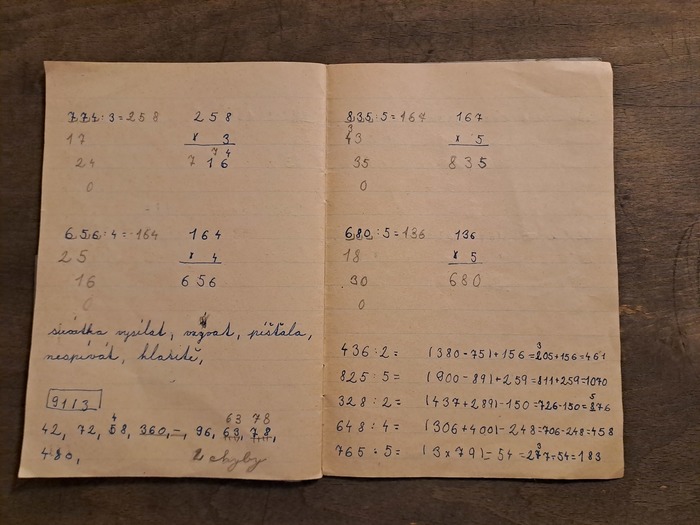 774:3=258 258
17 × 3
24 74
0 716
656:4=164 164
25 × 4
16 656
0
vysílat, vzývat, píšťala,
nespívat, hlasitě,
91/3
63 78
4
42, 72, 58, 360, –, 96, 63, 78,
480, 2 chyby
835:5=167 167
3
43 × 5
35 835
0
680:5=136 136
18 × 5
30 680
0
436:2= (380-75)+156=205+156=461
3
825:5= (900-89)+259=811+259=1070
328:2= (437+289)-150=726-150=876
5
648:4= (306+400)-248=706-248=458
765:5= (3×79)-54=277-54=183
3